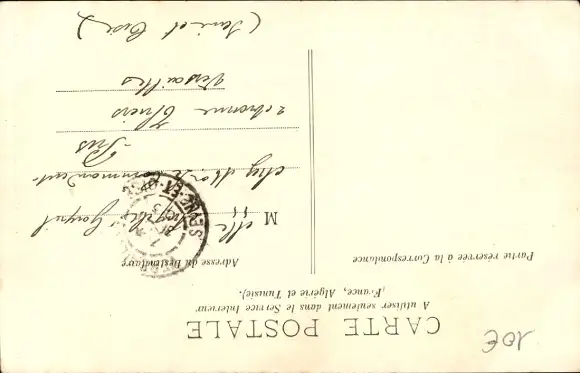 CARTE POSTALE
A utiliser seulement dans le Service Intérieur
(France, Algérie et Tunisie).
Partie réservée à la Correspondance
Adresse du Destinataire
M
Mlle
chez M. le Commandant
Pris
2 Avenue Thiers
Versailles
(Seine et Oise)
SEINE-ET-OISE
10€